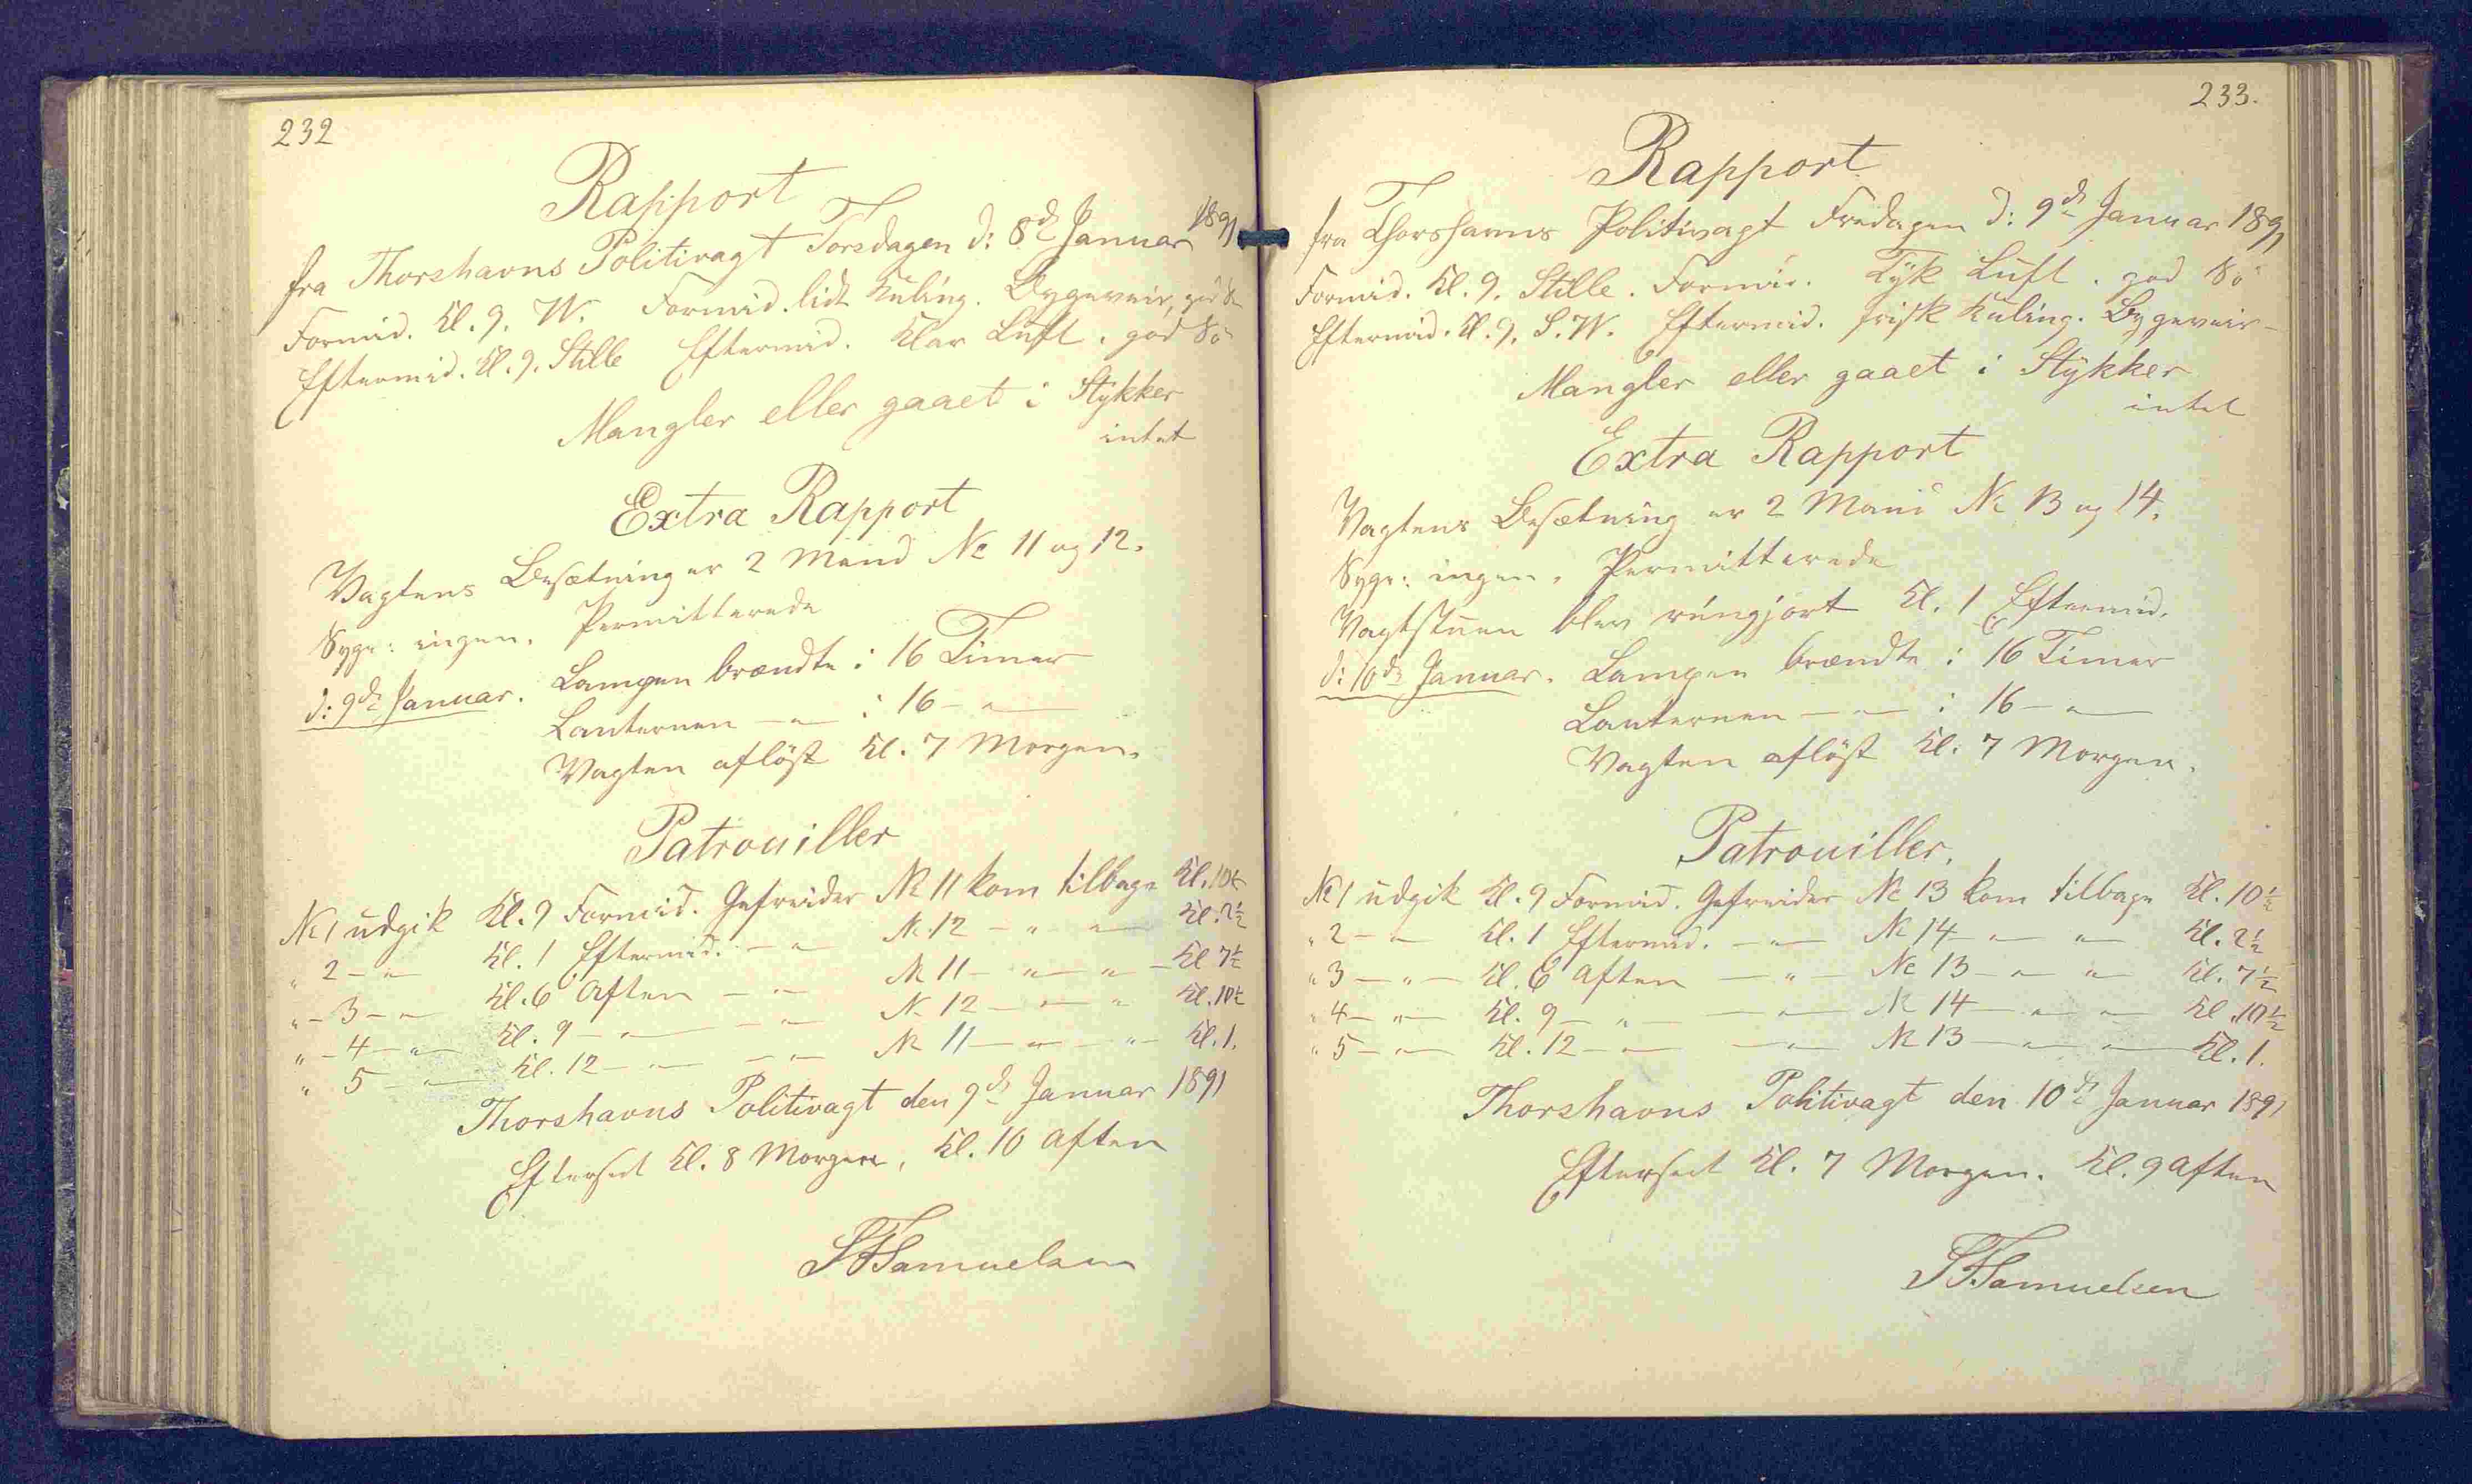 232
Rapport
fra Thorshavns Politivagt Torsdagen d: 8de Januar 1891
Formid. Kl. 9. W. Formid. lidt Kuling. Bygeveir, god Sö
Eftermid. Kl. 9. Stille Eftermid. Klar Luft, god Sö
Mangler eller gaaet i Stykker
intet
Extra Rapport
Vagtens Besætning er 2 Mand No 11 og 12.
Syge: ingen. Permitterede
d: 9de Januar. Lampen brændte i 16 Timer
Lanternen — " — i 16 — " —
Vagten aflöst Kl. 7 Morgen.
Patrouiller
No 1 udgik Kl. 9 Formid. Gefreider No 11 kom tilbage Kl. 10½
" 2 — " — Kl. 1 Eftermid. — " — No 12 — " — " — Kl. 2½
" — 3 — " — Kl. 6 Aften — " — No 11 — " — " — Kl. 7½
" — 4 — " — Kl. 9 — " — — " — No 12 — " — " — Kl. 10½
" 5 — " — Kl. 12 — " — — " — No 11 — " — " — Kl. 1.
Thorshavns Politivagt den 9de Januar 1891
Efterseet Kl. 8 Morgen, Kl. 10 Aften
SFSamuelsen
233.
Rapport
fra Thorshavns Politivagt Fredagen d: 9de Januar 1891
Formid. Kl. 9. Stille. Formid. Tyk Luft. god Sö
Eftermid. Kl. 9. S.W. Eftermid. frisk Kuling. Bygeveir —
Mangler eller gaaet i Stykker
intet
Extra Rapport
Vagtens Besætning er 2 Mand No 13 og 14.
Syge: ingen. Permitterede
Vagtstuen blev rengjort Kl. 1 Eftermid.
d: 10de Januar. Lampen brændte i 16 Timer
Lanternen — " — i 16 — " —
Vagten aflöst Kl. 7 Morgen.
Patrouiller.
No 1 udgik Kl. 9 Formid. Gefreider No 13 kom tilbage Kl. 10½
" 2 — " — Kl. 1 Eftermid. — " — No 14 — " — " — Kl. 2½
" 3 — " — Kl. 6 Aften — " — No 13 — " — " — Kl. 7½
" 4 — " — Kl. 9 — " — — " — No 14 — " — " — Kl. 10½
" 5 — " — Kl. 12 — " — — " — No 13 — " — " — Kl. 1.
Thorshavns Politivagt den 10de Januar 1891
Efterseet Kl. 7 Morgen. Kl. 9 Aften
SFSamuelsen